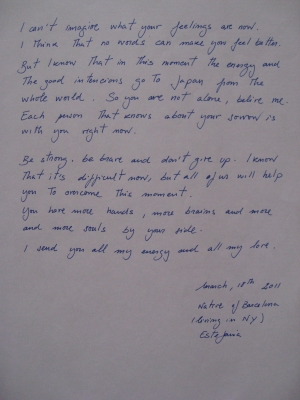 I can't imagine what your feelings are now.
I think that no words can make you feel better.
But I know that in this moment the energy and
the good intencions go to Japan from the
whole world. So you are not alone, belive me.
Each person that knows about your sorrow is
with you right now.
Be strong, be brave and don't give up. I know
that it's difficult now, but all of us will help
you to overcome this moment.
You have more hands, more brains and more
and more souls by your side.
I send you all my energy and all my love.
March, 18th 2011
Native of Barcelona
(living in NY)
Estefania